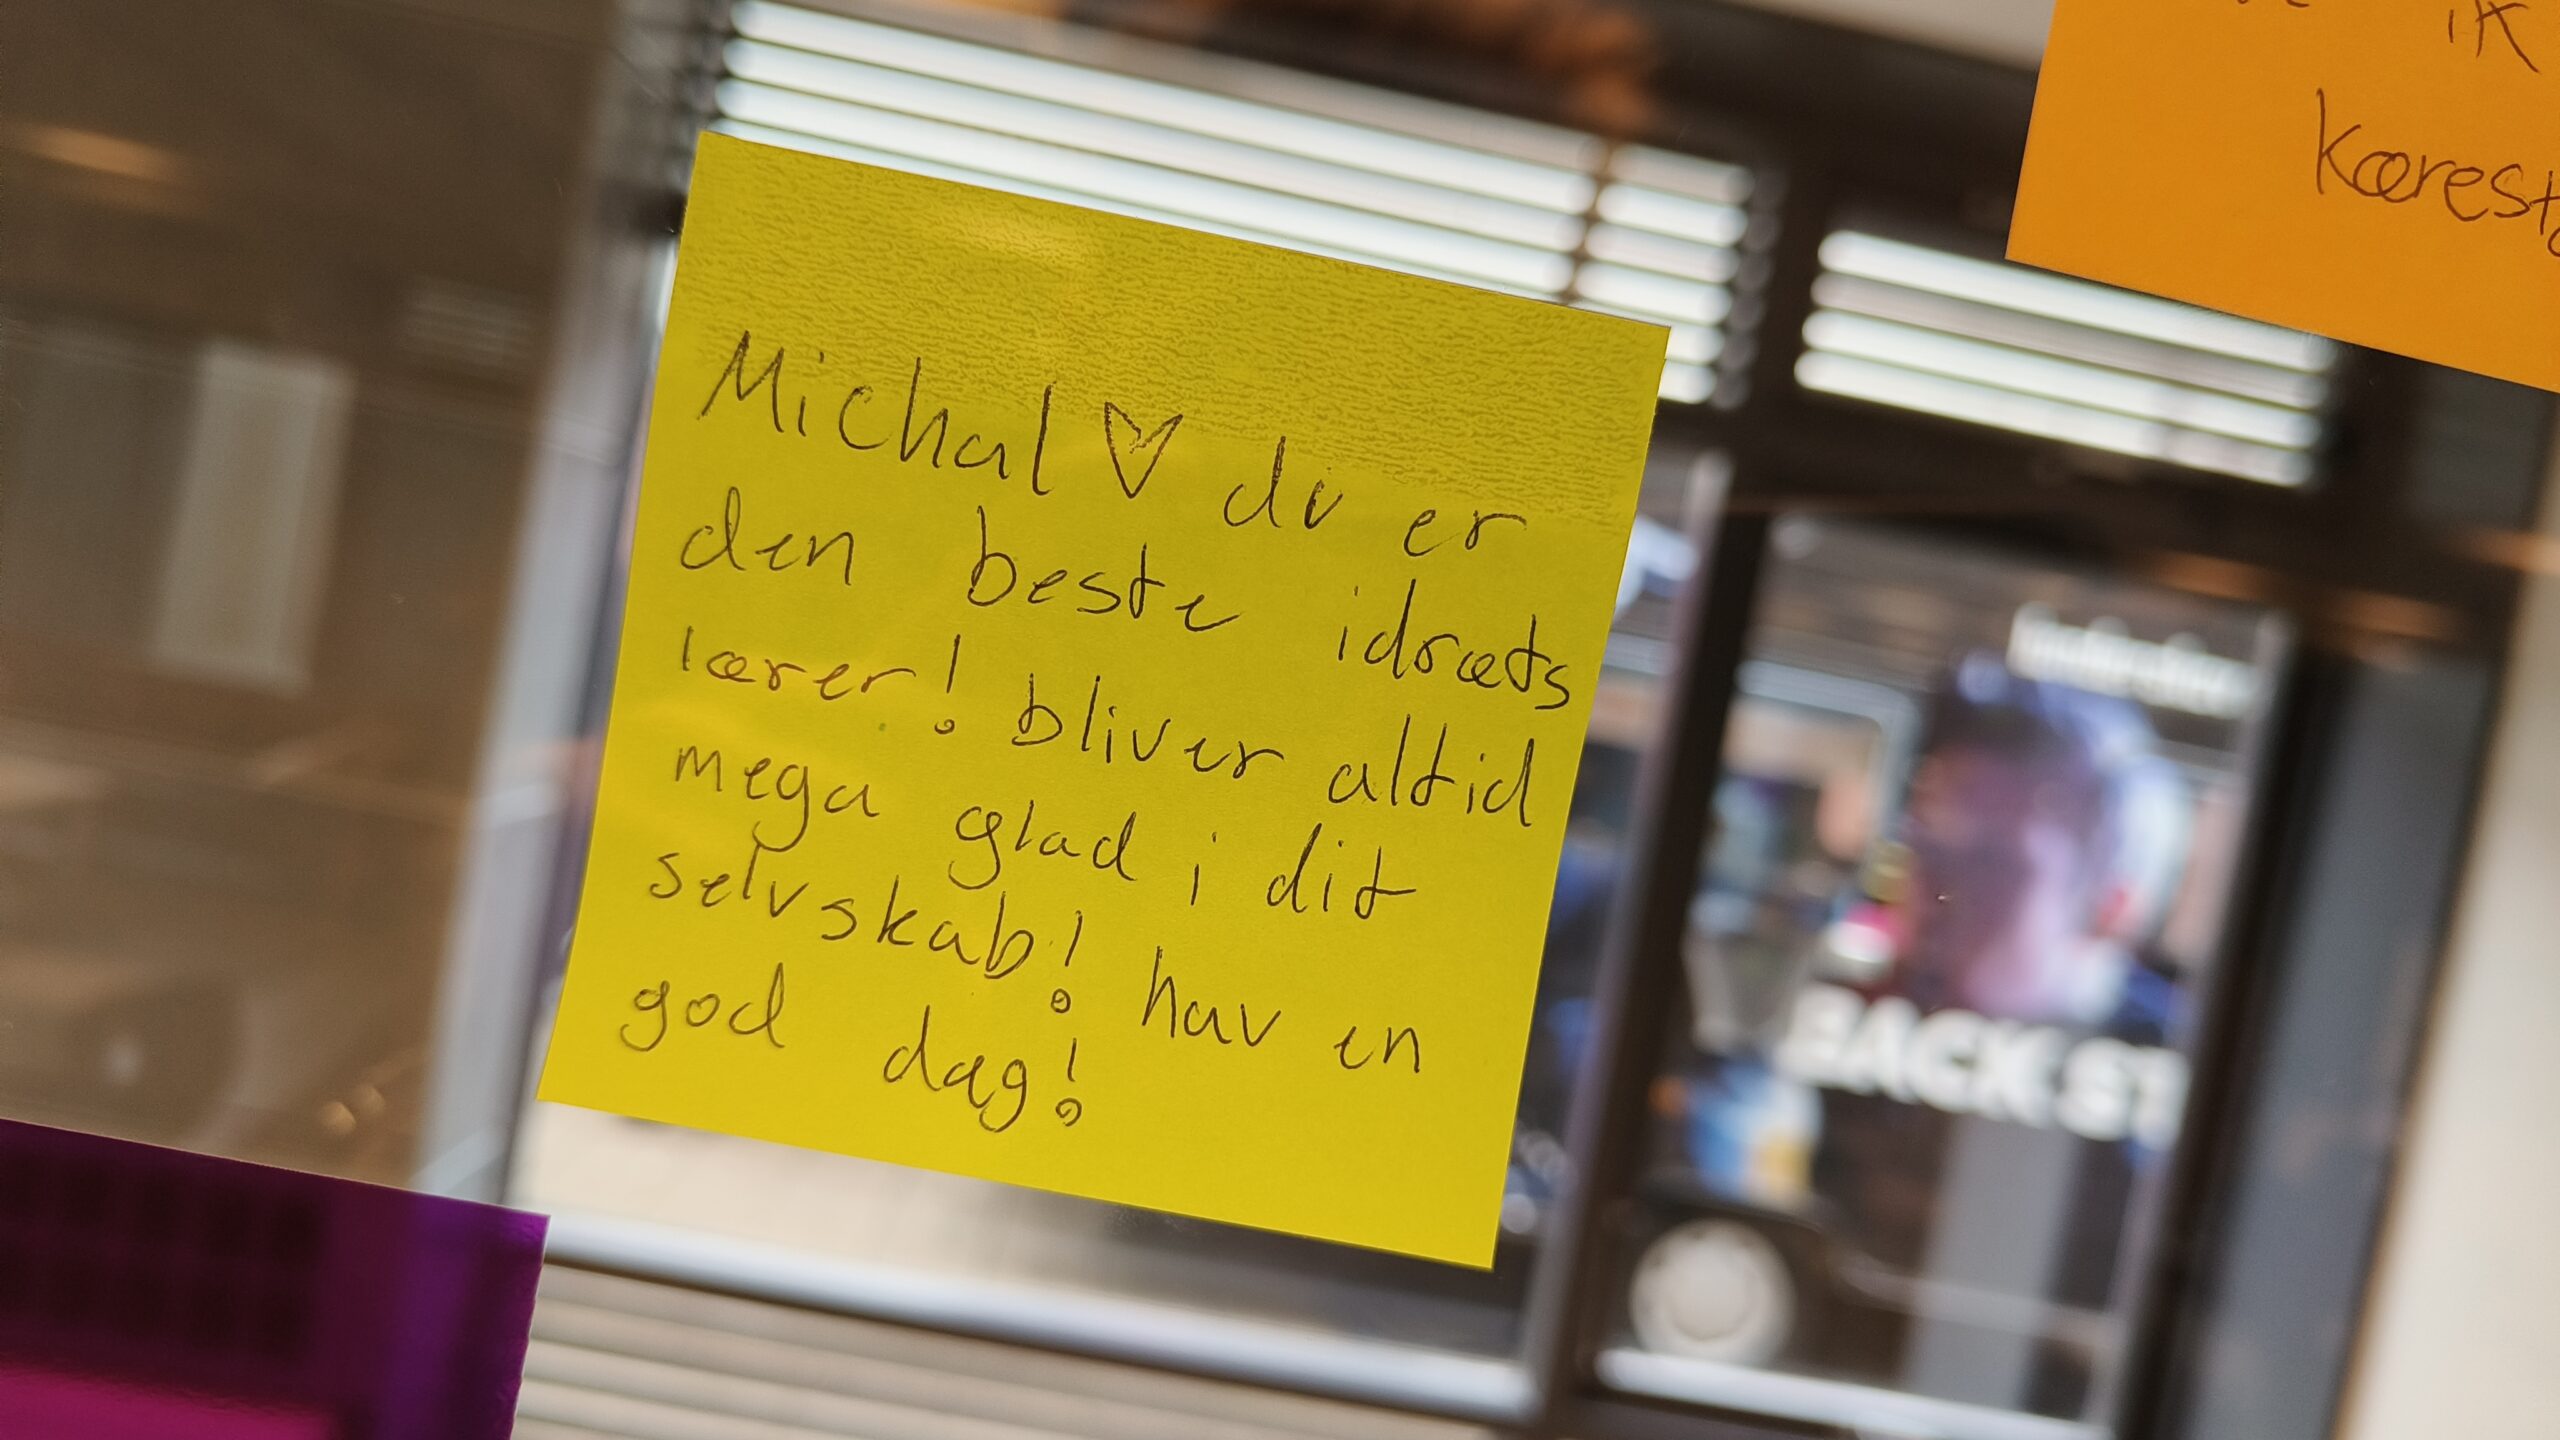 Michal ♡ du er
den beste idræts
lærer! bliver altid
mega glad i dit
selvskab! hav en
god dag!
ik
BACK ST